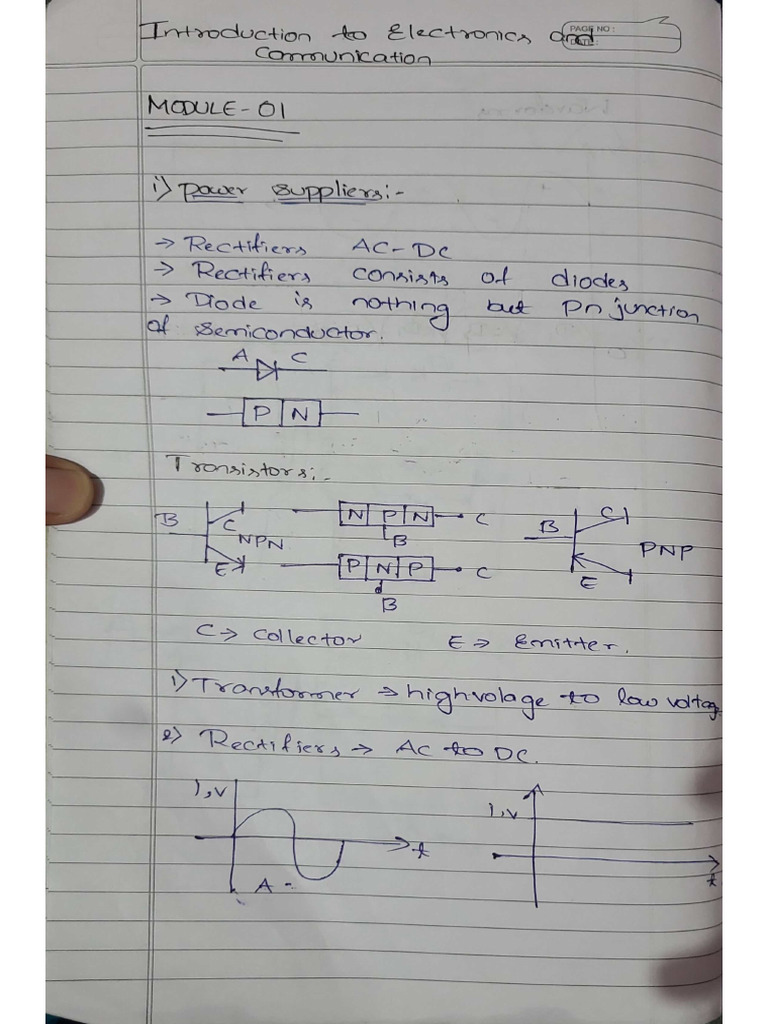 PAGE NO:
DATE:
Introduction to Electronics and
Communication
MODULE-01
i) power suppliers:-
→ Rectifiers AC-DC
→ Rectifiers consists of diodes
→ Diode is nothing but Pn junction
of semiconductor.
A C
P N
Transistors:-
B C NPN E
N P N C
B
P N P C
B
B C PNP E
C → Collector E → Emitter.
1) Transformer → high volage to low voltag
2) Rectifiers → AC to DC.
I,V t
A -
I,V t